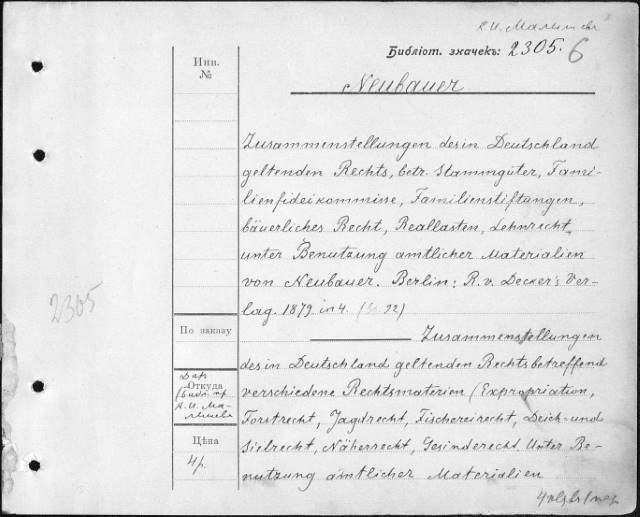 К. И. Малышева
Библіот. значекъ: 2305. б
Инв.
№
Neubauer
Zusammenstellungen des in Deutschland
geltenden Rechts, betr. Stammgüter, Fami-
lienfideikommisse, Familienstiftungen,
bäuerliches Recht, Reallasten, Lehnrecht,
unter Benutzung amtlicher Materialien
von Neubauer. Berlin: R. v. Decker's Ver-
lag. 1879 in 4.
2305
По заказу
Zusammenstellungen
des in Deutschland geltenden Rechts betreffend
Откуда
Даръ
(библ. пр.
К. И. Ма-
лышева
verschiedene Rechtsmaterien (Expropriation,
Forstrecht, Jagdrecht, Fischereirecht, Deich- und
Цѣна
4 р.
Sielrecht, Näherrecht, Gesinderecht. Unter Be-
nutzung amtlicher Materialien